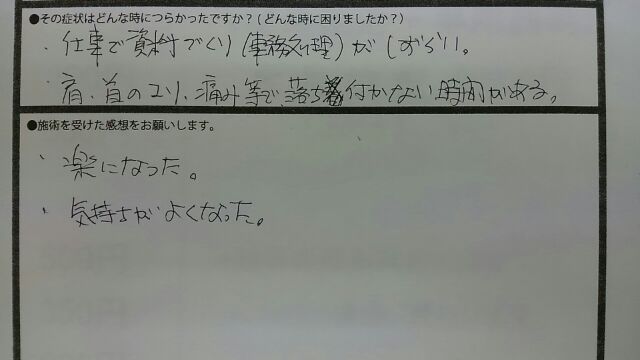 ●その症状はどんな時につらかったですか？(どんな時に困りましたか？)
・仕事で資料づくり(事務処理)がしずらい。
・肩、首のコリ、痛み等で落ち付かない時間がある。
●施術を受けた感想をお願いします。
・楽になった。
・気持ちがよくなった。